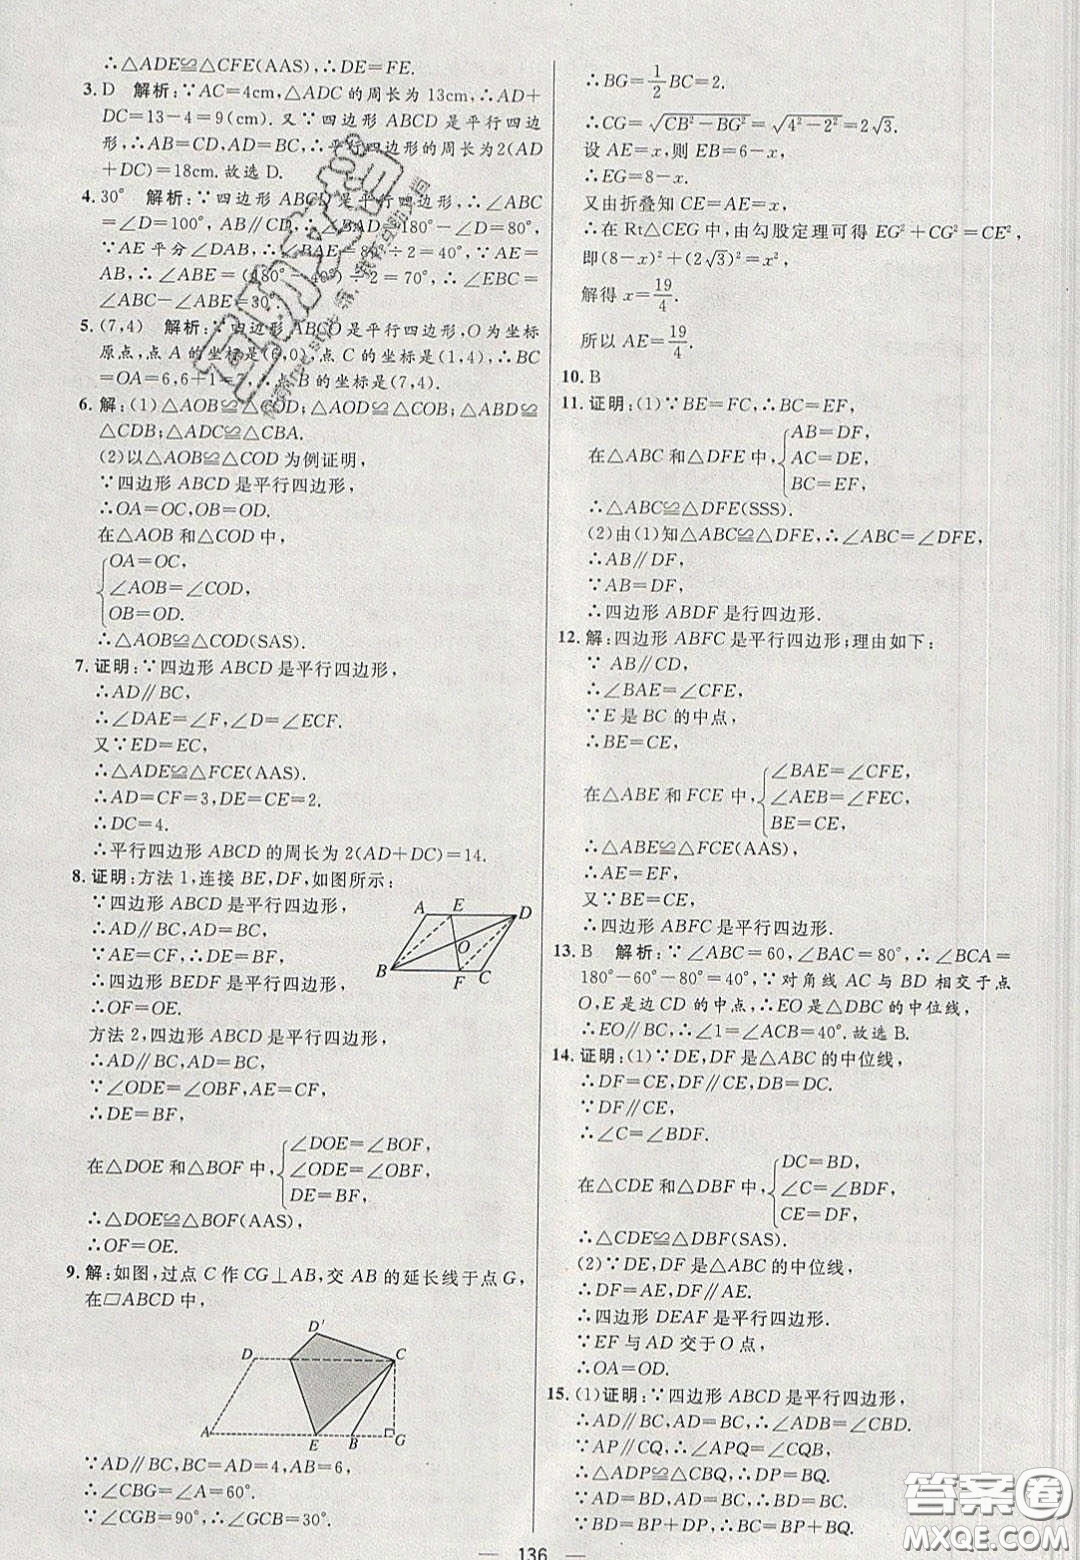 ∴△ADE≌△CFE(AAS),∴DE=FE.
3. D 解析:∵AC=4cm,△ADC的周长为13cm,∴AD+
DC=13-4=9(cm).又∵四边形ABCD是平行四边
形,∴AB=CD,AD=BC,∴平行四边形的周长为2(AD
+DC)=18cm.故选D.
4. 30° 解析:∵四边形ABCD是平行四边形,∴∠ABC
=∠D=100°,AB∥CD,∴∠BAD=180°-∠D=80°,
∵AE平分∠DAB,∴∠BAE=80°÷2=40°,∵AE=
AB,∴∠ABE=(180°-40°)÷2=70°,∴∠EBC=
∠ABC-∠ABE=30°.
5. (7,4) 解析:∵四边形ABCO是平行四边形,O为坐标
原点,点A的坐标是(6,0),点C的坐标是(1,4),∴BC
=OA=6,6+1=7,∴点B的坐标是(7,4).
6. 解:(1)△AOB≌△COD;△AOD≌△COB;△ABD≌
△CDB;△ADC≌△CBA.
(2)以△AOB≌△COD为例证明,
∵四边形ABCD是平行四边形,
∴OA=OC,OB=OD.
在△AOB和△COD中,
OA=OC,
∠AOB=∠COD,
OB=OD.
∴△AOB≌△COD(SAS).
7. 证明:∵四边形ABCD是平行四边形,
∴AD∥BC,
∴∠DAE=∠F,∠D=∠ECF.
又∵ED=EC,
∴△ADE≌△FCE(AAS).
∴AD=CF=3,DE=CE=2.
∴DC=4.
∴平行四边形ABCD的周长为2(AD+DC)=14.
8. 证明:方法1,连接BE,DF,如图所示:
∵四边形ABCD是平行四边形,
∴AD∥BC,AD=BC,
∵AE=CF,∴DE=BF,
∴四边形BEDF是平行四边形,
∴OF=OE.
A E D
O
B F C
方法2,四边形ABCD是平行四边形,
∴AD∥BC,AD=BC,
∵∠ODE=∠OBF,AE=CF,
∴DE=BF,
∠DOE=∠BOF,
在△DOE和△BOF中, ∠ODE=∠OBF,
DE=BF,
∴△DOE≌△BOF(AAS),
∴OF=OE.
9. 解:如图,过点C作CG⊥AB,交AB的延长线于点G,
在▱ABCD中,
D′
D C
A E B G
∵AD∥BC,BC=AD=4,AB=6,
∴∠CBG=∠A=60°.
∵∠CGB=90°,∴∠GCB=30°.
∴BG=1/2BC=2.
∴CG=√(CB²-BG²)=√(4²-2²)=2√3.
设AE=x,则EB=6-x,
∴EG=8-x.
又由折叠知CE=AE=x,
∴在Rt△CEG中,由勾股定理可得EG²+CG²=CE²,
即(8-x)²+(2√3)²=x²,
解得x=19/4.
所以AE=19/4.
10. B
11. 证明:(1)∵BE=FC,∴BC=EF,
AB=DF,
在△ABC和△DFE中, AC=DE,
BC=EF,
∴△ABC≌△DFE(SSS).
(2)由(1)知△ABC≌△DFE,∴∠ABC=∠DFE,
∴AB∥DF,
∵AB=DF,
∴四边形ABDF是行四边形.
12. 解:四边形ABFC是平行四边形;理由如下:
∵ AB∥CD,
∴∠BAE=∠CFE,
∵E是BC的中点,
∴BE=CE,
∠BAE=∠CFE,
在△ABE和FCE中, ∠AEB=∠FEC,
BE=CE,
∴△ABE≌△FCE(AAS).
∴AE=EF,
又∵BE=CE,
∴四边形ABFC是平行四边形.
13. B 解析:∵∠ABC=60,∠BAC=80°,∴∠BCA=
180°-60°-80°=40°,∵对角线AC与BD相交于点
O,E是边CD的中点,∴EO是△DBC的中位线,
∴EO∥BC,∴∠1=∠ACB=40°.故选B.
14. 证明:(1)∵DE,DF是△ABC的中位线,
∴DF=CE,DF∥CE,DB=DC.
∵DF∥CE,
∴∠C=∠BDF.
DC=BD,
在△CDE和△DBF中, ∠C=∠BDF,
CE=DF,
∴△CDE≌△DBF(SAS).
(2)∵DE,DF是△ABC的中位线,
∴DF=AE,DF∥AE.
∴四边形DEAF是平行四边形.
∵EF与AD交于O点,
∴OA=OD.
15. (1)证明:∵四边形ABCD是平行四边形,
∴AD∥BC,AD=BC,∴∠ADB=∠CBD.
∵AP∥CQ,∴∠APQ=∠CQB,
∴△ADP≌△CBQ,∴DP=BQ.
∵AD=BD,AD=BC,∴BD=BC.
∵BD=BP+DP,∴BC=BP+BQ.
136
答案圈
MXQE.COM